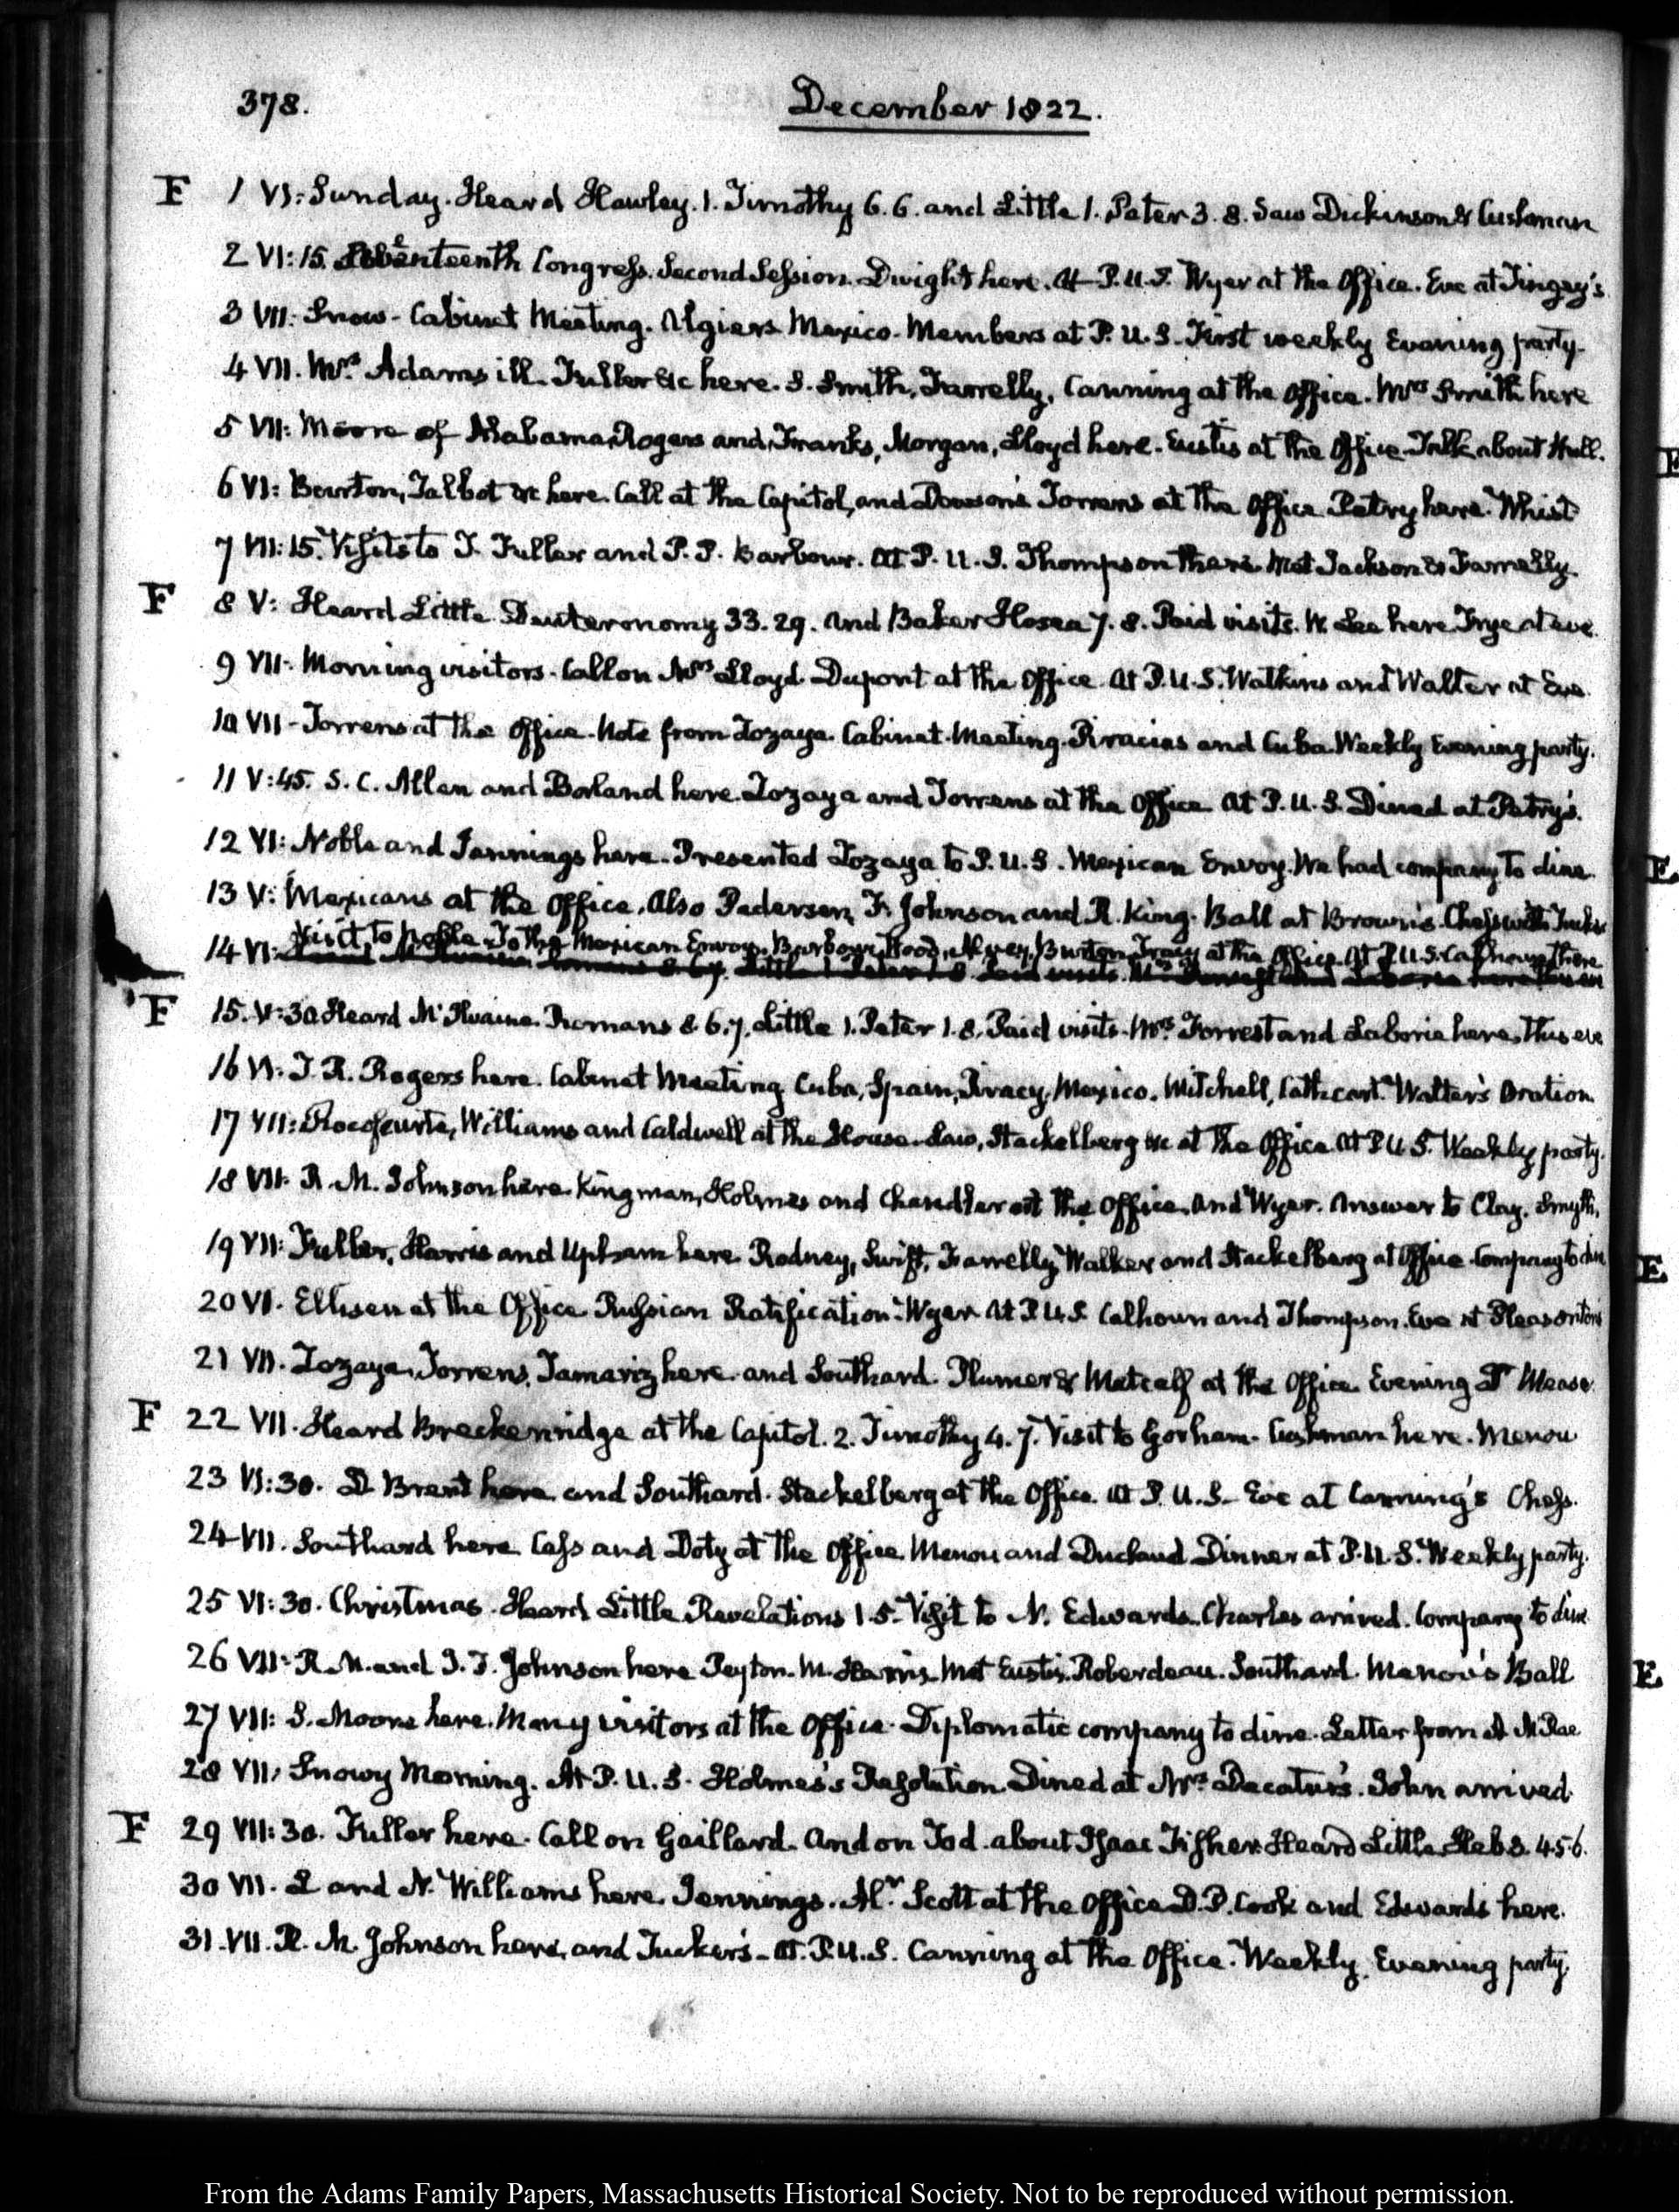 378.
December 1822.
F 1 VI: Sunday. Heard Hawley. 1. Timothy 6. 6. and Little 1. Peter 3. 8. Saw Dickinson & Cushman
2 VI:15. Seventeenth Congress. Second Session. Dwight here. At P.U.S. Wyer at the Office. Eve at Tingey's
3 VII: Snow. Cabinet Meeting. Algiers. Mexico. Members at P.U.S. First weekly Evening party.
4 VII. Mrs. Adams ill. Fuller &c here. S. Smith, Farrelly, Canning at the Office. Mrs Smith here
5 VII: Moore of Alabama, Rogers and Franks, Morgan, Lloyd here. Eustis at the Office. Talk about Hull.
6 VI: Burton, Talbot &c here. Call at the Capitol, and Dawson's. Torrens at the Office. Petry here. Whist
7 VII:15. Visits to T. Fuller and P. P. Barbour. At P.U.S. Thompson there. Met Jackson & Farrelly.
F 8 V: Heard Little. Deuteronomy 33. 29. and Baker Hosea 7. 8. Paid visits. W. Lee here. Frye at eve.
9 VII. Morning visitors. Call on Mrs Lloyd. Dupont at the Office. At P.U.S. Watkins and Walter at Eve.
10 VII. Torrens at the Office. Note from Zozaya. Cabinet Meeting. Piracies and Cuba. Weekly Evening party.
11 V:45. S. C. Allen and Borland here. Zozaya and Torrens at the Office. At P.U.S. Dined at Petry's.
12 VI: Noble and Jennings here. Presented Zozaya to P.U.S. Mexican Envoy. We had company to dine.
13 V: Mexicans at the Office. Also Pedersen, F. Johnson and R. King. Ball at Brown's. Chess with Tucker
14 VI: Visit to Noble. To the Mexican Envoy. Barbour, Hood, Burton, Tracy at the Office. At P.U.S. Calhoun there
F 15. V:30 Heard McIlvaine. Romans 8. 6.7. Little 1. Peter 1. 8. Paid visits. Mrs. Forrest and Laborie here. This eve
16 VI: J. R. Rogers here. Cabinet Meeting. Cuba, Spain, Piracy, Mexico. Mitchell, Cathcart. Walter's Oration.
17 VII: Rocafuerte, Williams and Caldwell at the House. Law, Stackelberg &c at the Office. At P.U.S. Weekly party.
18 VII. R. M. Johnson here. Kingman, Holmes and Chandler at the Office. And Wyer. Answer to Clay. Smyth,
19 VII: Fuller, Harris and Upham here. Rodney, Swift, Farrelly, Walker and Stackelberg at Office. Company to dine
20 VI. Ellisen at the Office. Russian Ratification. Wyer. At P.U.S. Calhoun and Thompson. Eve at Pleasonton's
21 VII. Zozaya, Torrens, Tamariz here. and Southard. Plumer & Metcalf at the Office. Evening Dr Mease.
F 22 VII. Heard Breckenridge at the Capitol. 2. Timothy 4. 7. Visit to Gorham. Cushman here. Menou
23 VI:30. D. Brent here and Southard. Stackelberg at the Office. At P.U.S. Eve at Canning's Chess.
24 VII. Southard here. Cass and Doty at the Office. Menou and Duclaud. Dinner at P.U.S. Weekly party.
25 VI:30. Christmas. Heard Little. Revelations 1 5. Visit to N. Edwards. Charles arrived. Company to dine
26 VII: R. M. and J. T. Johnson here. Peyton. M. Harris. Met Eustis. Roberdeau. Southard. Menou's Ball
27 VII: S. Moore here. Many visitors at the Office. Diplomatic company to dine. Letter from A. McRae
28 VII: Snowy Morning. At P.U.S. Holmes's Resolution. Dined at Mrs Decatur's. John arrived.
F 29 VII:30. Fuller here. Call on Gaillard. And on Tod. about Isaac Fisher. Heard Little. Heb 3. 4.5.6.
30 VII. L and N. Williams here. Jennings. Alr Scott at the Office. D. P. Cook and Edwards here.
31. VII. R. M. Johnson here, and Tucker's. At P.U.S. Canning at the Office. Weekly Evening party.
From the Adams Family Papers, Massachusetts Historical Society. Not to be reproduced without permission.